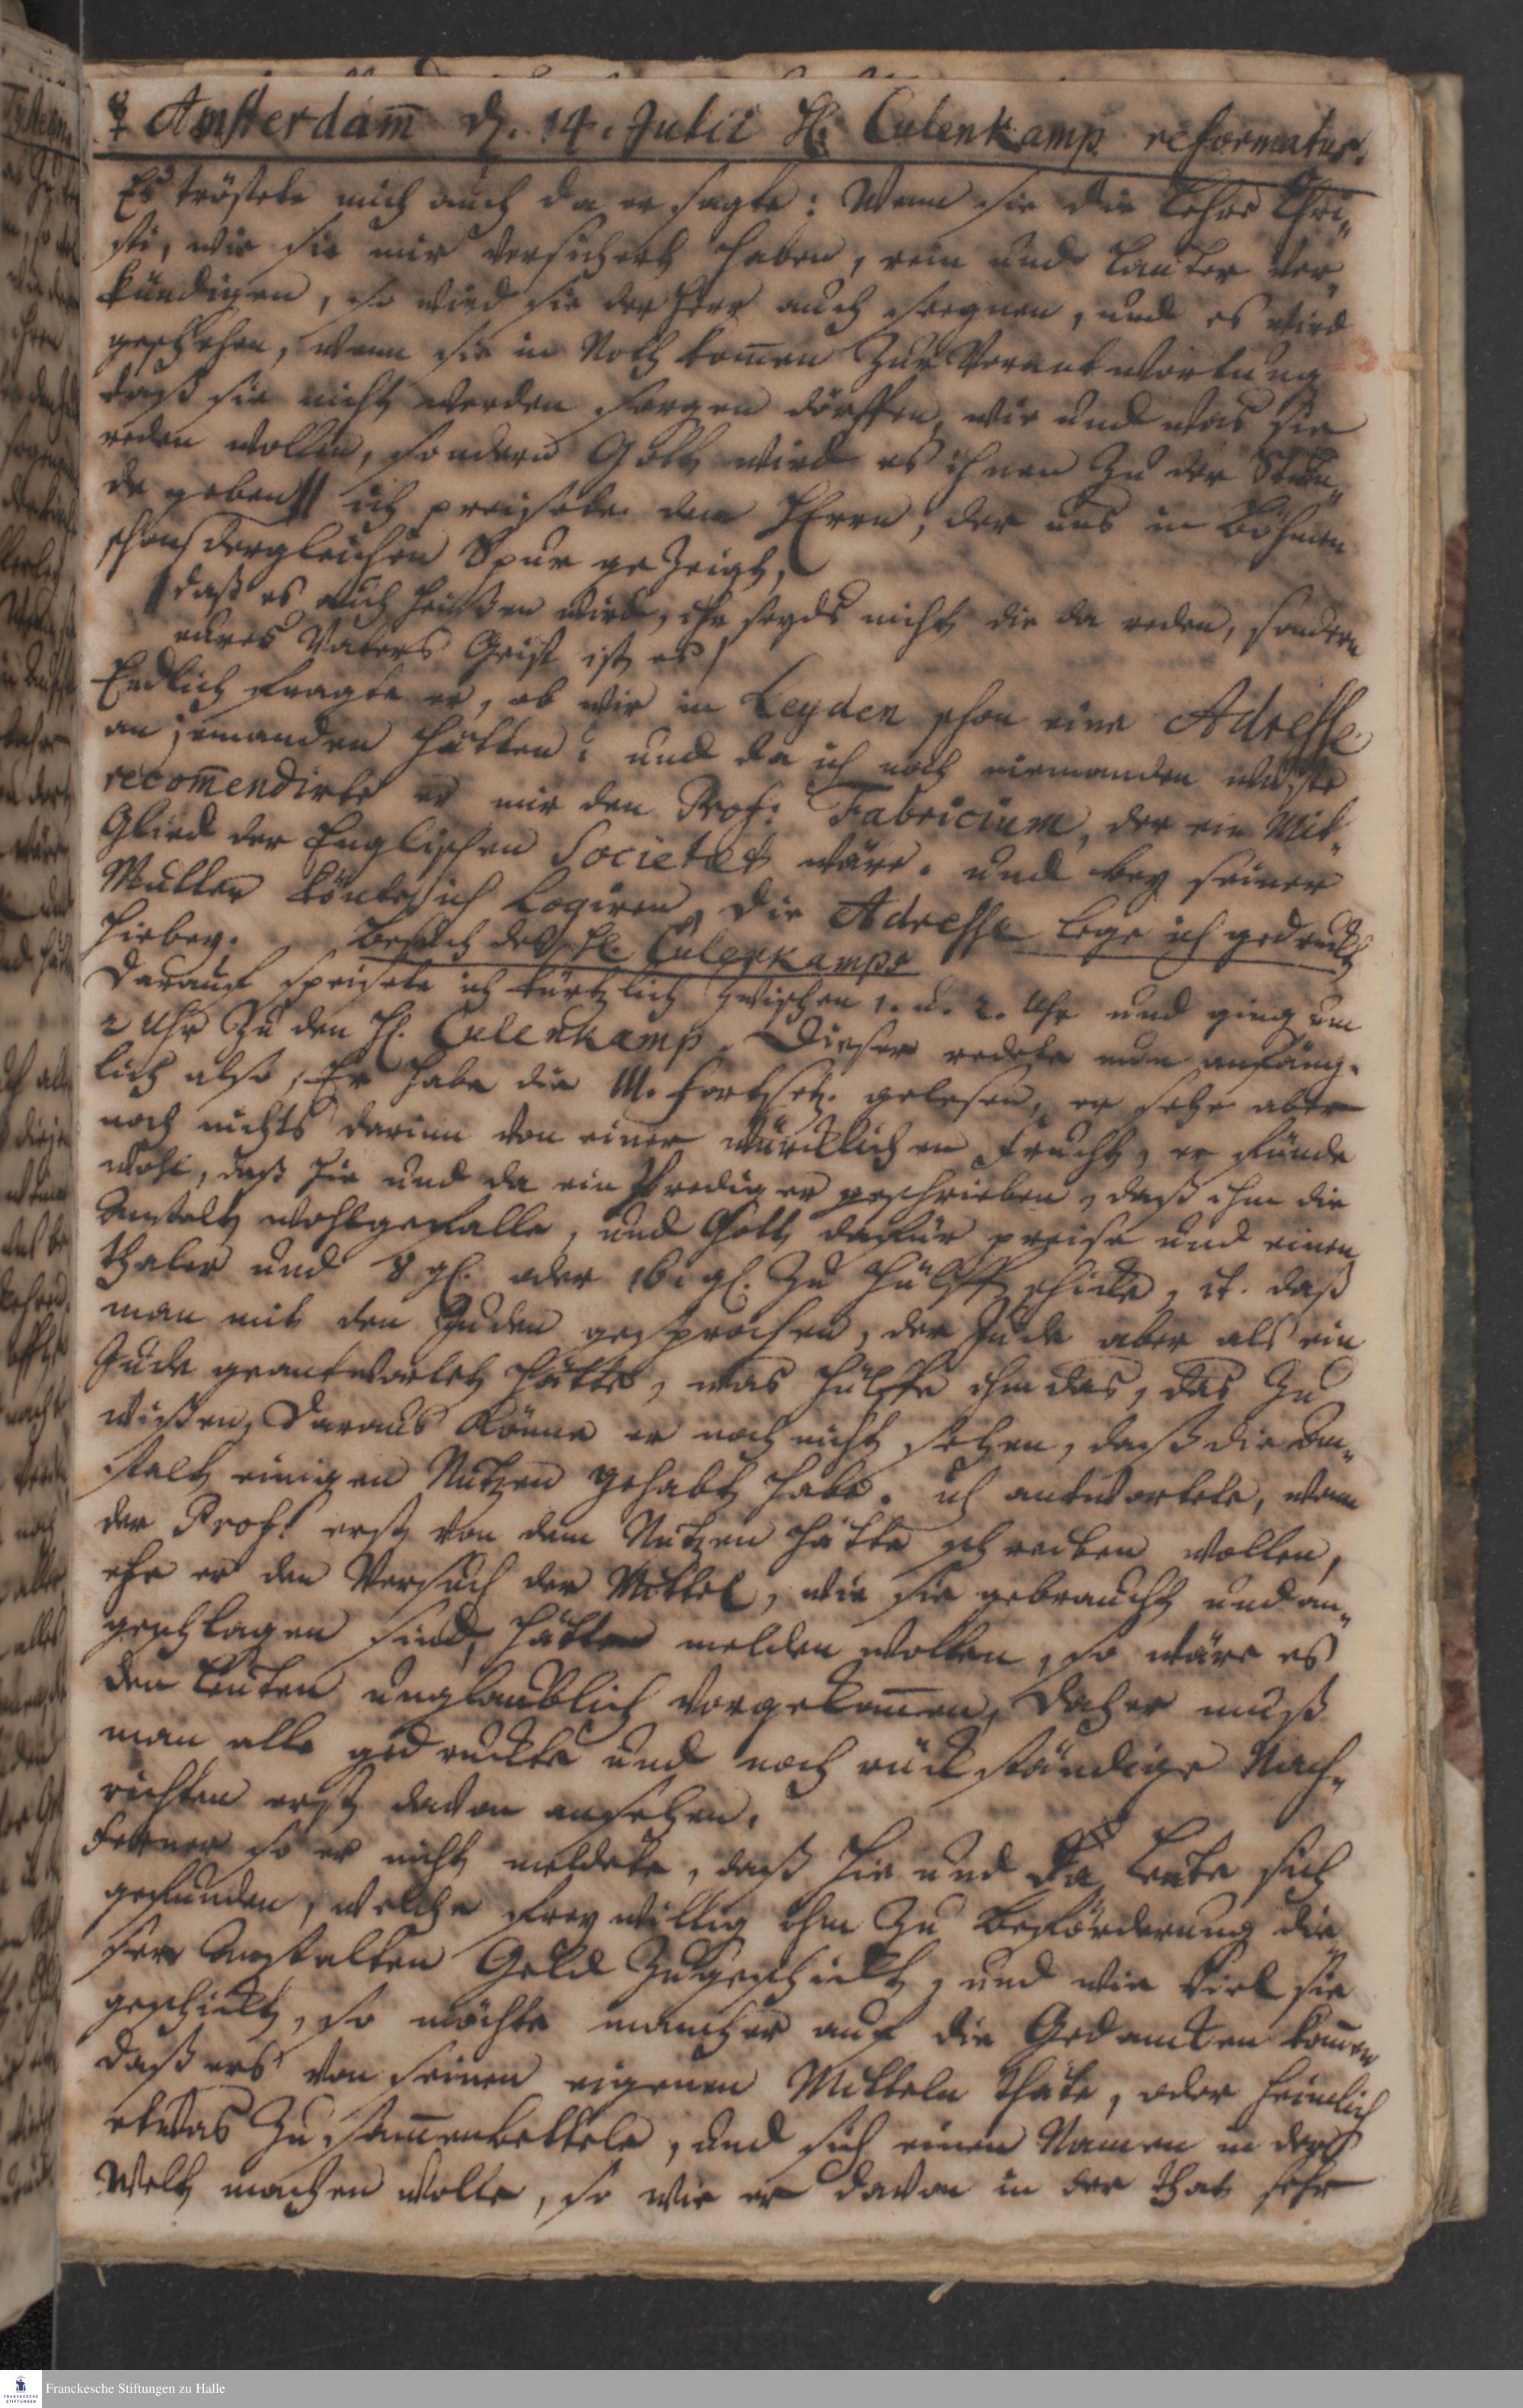 ♀ Amsterdam̅ d. 14. Julii H. Culenkamp reformatus.
Es tröstete mich auch da er sagte: Wenn sie die Lehre Chri„
sti, wie sie mir versichert haben, rein und lauter ver„
kündigen, so wird sie der Herr auch seegnen, und es wird
geschehen, wenn sie in Noth kom̅en zur Verantwortung
daß sie nicht werden sorgen dörffen, wie und was sie
reden wollen, sondern Gott wird es ihnen zu der Stun„
de geben ich preisete den HErrn, der uns in Böhmen
schon dergleichen Spur gezeigt,
daß es auch heißen wird, ihr seyds nicht die da reden, sondern
eures Vaters Geist ist es
Endlich fragte er, ob wir in Leyden schon eine Adresse
an jemanden hätten: und da ich noch niemanden wuste
recom̅endirte er mir den Prof: Fabricium, der ein Mit„
Glied der Englischen Societaet wäre. und bey seiner
Mutter könte ich logiren, die Adresse lege ich gedruckt
hiebey. Besuch des H. Culenkamps
Darauf speisete ich kürtzlich zwischen 1. u. 2. Uhr und ging um
2 Uhr zu den H. Culenkamp. Dieser redete nun anfäng„
lich also, Er habe die III. Fortsetz. gelesen, er sehe aber
noch nichts darinn von einer würcklichen Frucht, er finde
wohl, daß hie und da ein Prediger geschrieben, daß ihm die
Anstalt wohlgefalle, und Gott dafür preise und einen
thaler und 8 gl. oder 16. gl. zu hülff schicke, it. daß
man mit den Juden gesprochen, der Jude aber als ein
Jude geantwortet hätte, was hülffe ihm das, das zu
wißen, Daraus könne er noch nicht sehen, daß die An„
stalt einigen Nutzen gehabt habe. ich antwortete, wenn
der Prof: erst von dem Nutzen hätte schreiben wollen,
ehe er den Versuch der Mittel, wie sie gebraucht und an„
geschlagen sind, hätte melden wollen, so wäre es
den Leuten unglaublich vorgekom̅en, Daher muß
man alle gedruckte und noch rückständige Nach„
richten erst davon ansehen.
Ferner so er nicht meldete, daß hie und da Leute sich
gefunden, welche freywillig ihm zu Beförderung die„
ser Anstalten Geld zugeschickt, und wie viel sie
geschickt, so möchte mancher auf die Gedancken kom̅en
daß ers von seinen eigenen Mitteln thäte, oder heimlich
etwas zusam̅enbettele, und sich einen Namen in der
Welt machen wolle, so wie er davon in der that sehr
Franckesche Stiftungen zu Halle